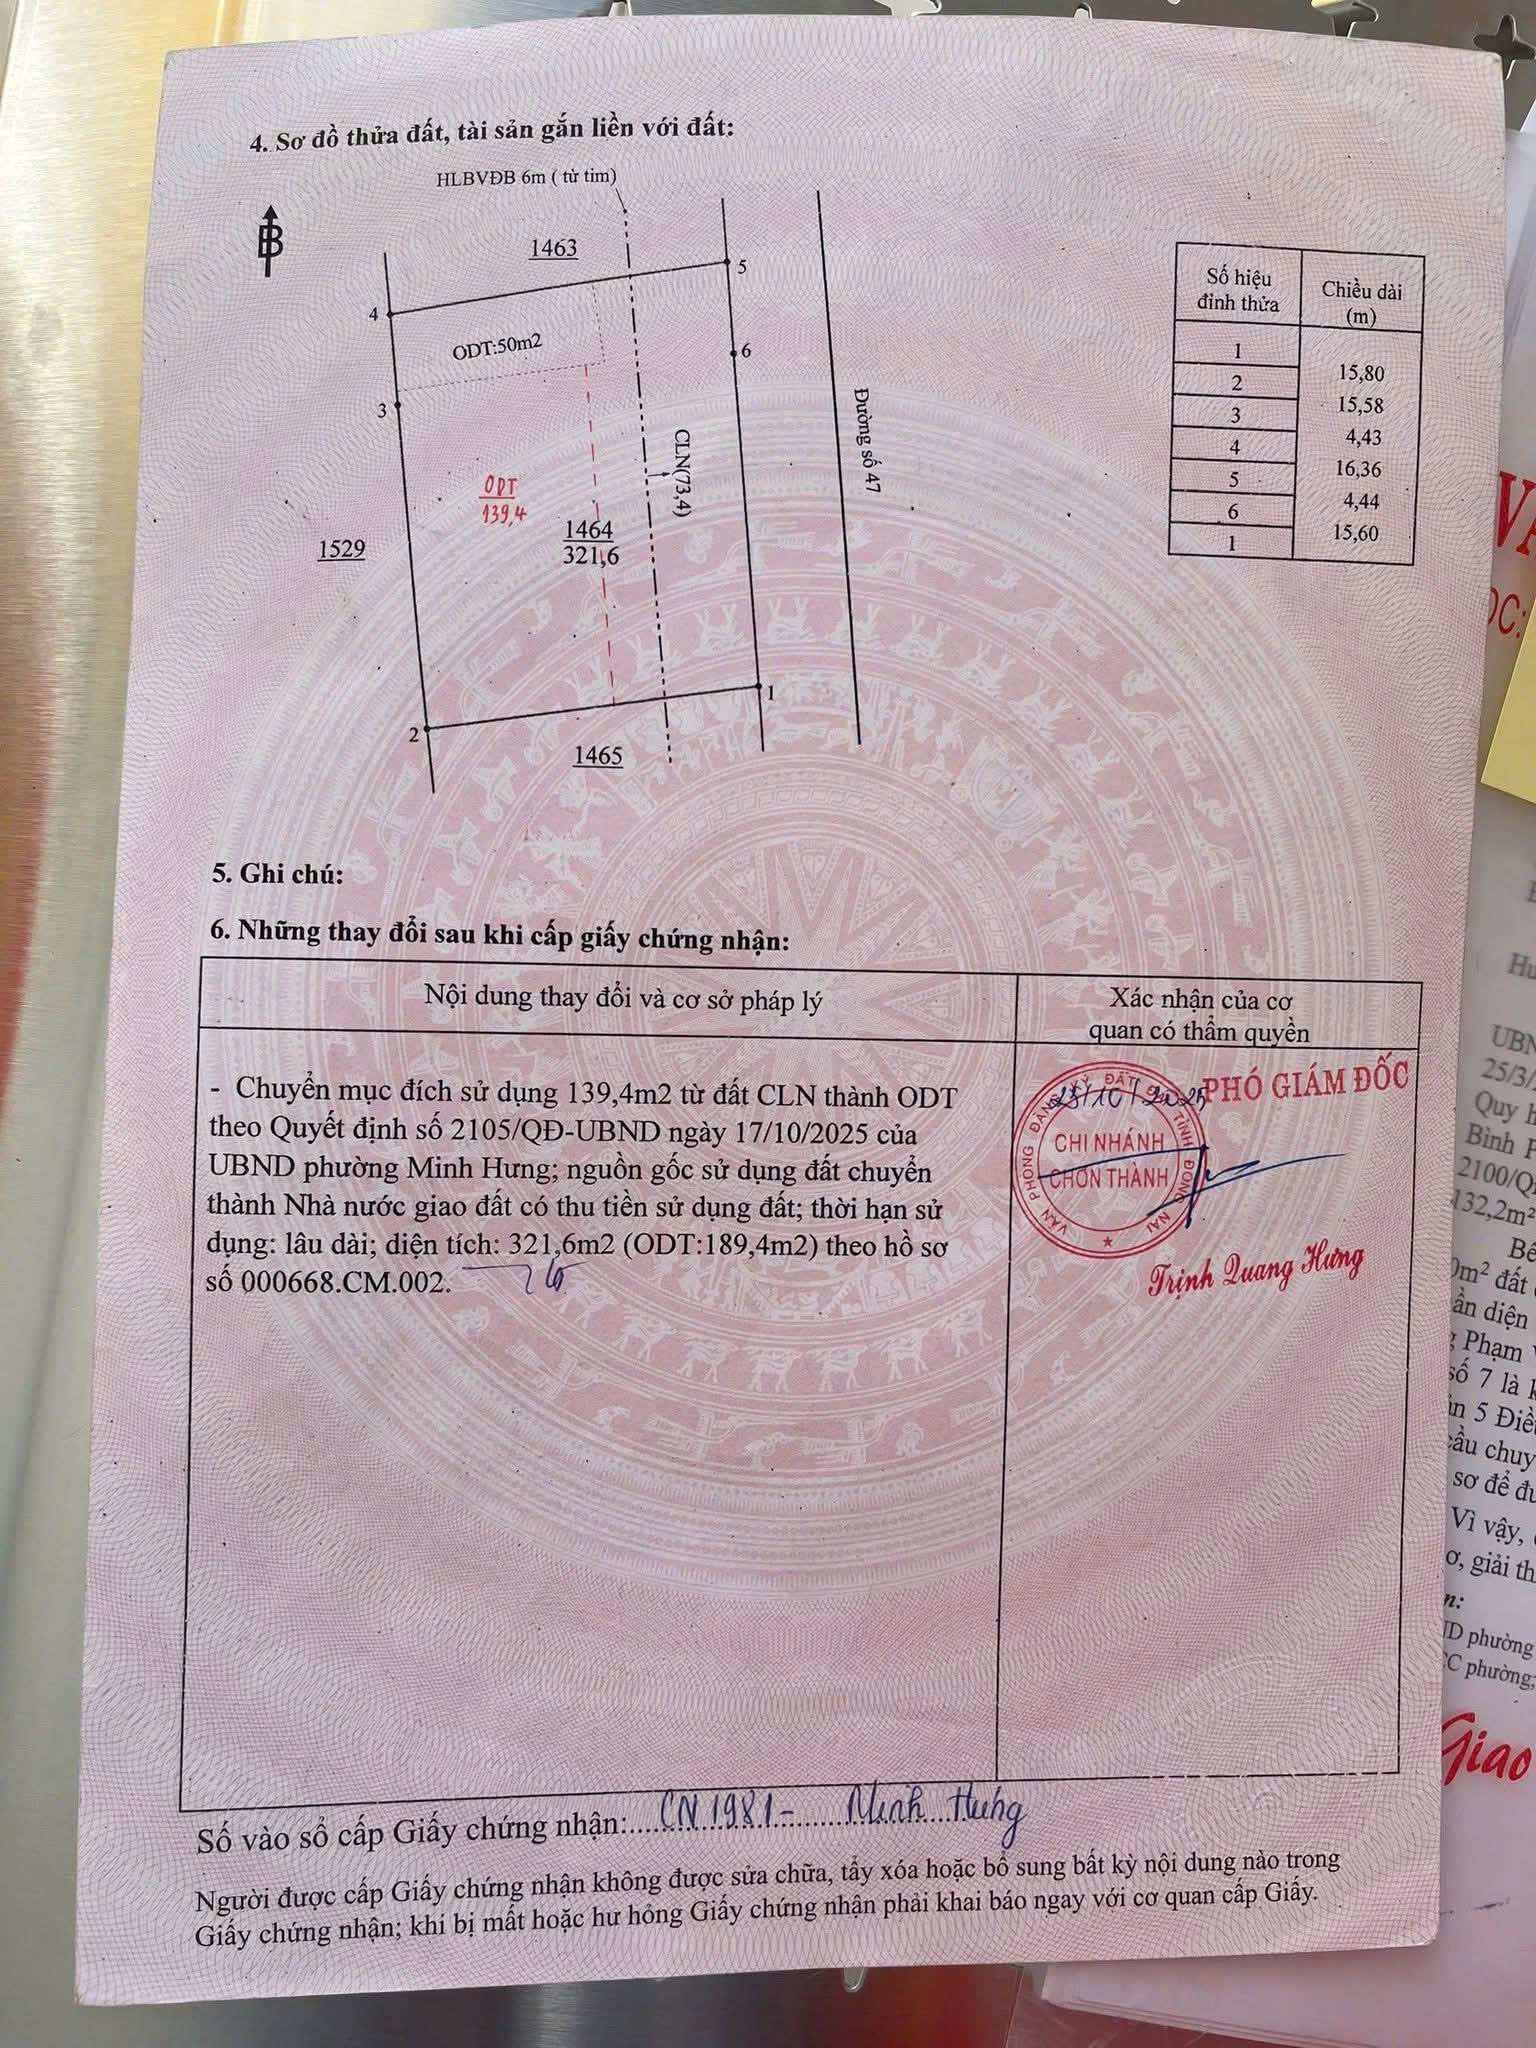 4. Sơ đồ thửa đất, tài sản gắn liền với đất:
HLBVĐB 6m ( từ tim)
B
1463
5
4
ODT:50m2
6
3
Đường số 47
CLN(73,4)
ODT
139,4
1464
321,6
1529
1
2
1465
Số hiệu đỉnh thửa
Chiều dài (m)
1
15,80
2
15,58
3
4,43
4
16,36
5
4,44
6
15,60
1
5. Ghi chú:
6. Những thay đổi sau khi cấp giấy chứng nhận:
Nội dung thay đổi và cơ sở pháp lý
Xác nhận của cơ
quan có thẩm quyền
- Chuyển mục đích sử dụng 139,4m2 từ đất CLN thành ODT
theo Quyết định số 2105/QĐ-UBND ngày 17/10/2025 của
UBND phường Minh Hưng; nguồn gốc sử dụng đất chuyển
thành Nhà nước giao đất có thu tiền sử dụng đất; thời hạn sử
dụng: lâu dài; diện tích: 321,6m2 (ODT:189,4m2) theo hồ sơ
số 000668.CM.002.
23/10/2025
PHÓ GIÁM ĐỐC
VĂN PHÒNG ĐĂNG KÝ ĐẤT ĐAI TỈNH ĐỒNG NAI
CHI NHÁNH
CHƠN THÀNH
Trịnh Quang Hưng
Số vào sổ cấp Giấy chứng nhận: CN 1981- Minh Hưng
Người được cấp Giấy chứng nhận không được sửa chữa, tẩy xóa hoặc bổ sung bất kỳ nội dung nào trong
Giấy chứng nhận; khi bị mất hoặc hư hỏng Giấy chứng nhận phải khai báo ngay với cơ quan cấp Giấy.
UBN
25/3/
Quy h
Bình P
2100/Q
132,2m²
0m² đất
ần diện
Phạm
số 7 là k
n 5 Điề
cầu chuy
sơ để đu
Vì vậy,
ơ, giải th
phường
CC phường;
Giao